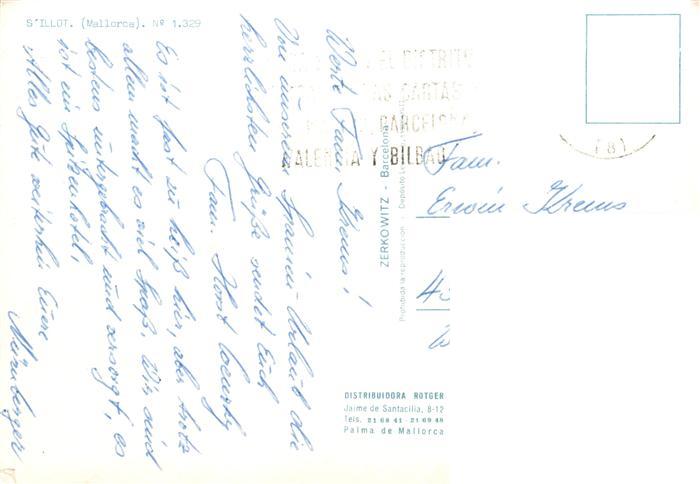 S'ILLOT. (Mallorca). Nº 1.329
Werte Fam. Krems!
Von unserem Spanien-Urlaub die
herrlichsten Grüße sendet Euch
Fam. Horst
Es ist fast zu heiß hier, aber trotz
allem macht es viel Spaß. Wir sind
bestens untergebracht und versorgt, es
ist ein Spitzenhotel.
Alles Gute weiterhin Eure
Nürnberger
EL DISTRITO
CARTAS
BARCELONA
VALENCIA Y BILBAO
(8)
ZERKOWITZ - Barcelona
Prohibida la reproducción - Depósito
Fam.
Erwin Krems
DISTRIBUIDORA ROTGER
Jaime de Santacilia, 8-12
Tels. 21 68 41 - 21 69 48
Palma de Mallorca